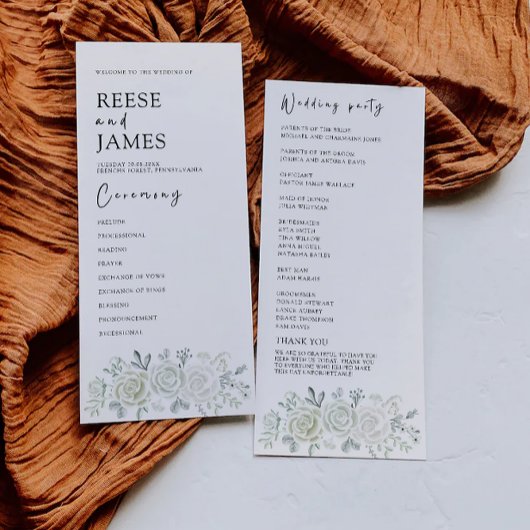 WELCOME TO THE WEDDING OF
REESE
and
JAMES
TUESDAY 10.05.20XX
FRENCHS FOREST, PENNSYLVANIA
Ceremony
PRELUDE
PROCESSIONAL
READING
PRAYER
EXCHANGE OF VOWS
EXCHANGE OF RINGS
BLESSING
PRONOUNCEMENT
RECESSIONAL
Wedding party
PARENTS OF THE BRIDE
MICHAEL AND CHARMAINE JONES
PARENTS OF THE GROOM
JOSHUA AND ANDREA DAVIS
OFFICIANT
PASTOR JAMES WALLACE
MAID OF HONOR
JULIA WHITMAN
BRIDESMAIDS
KYLA SMITH
TINA WILLOW
ANNA MIGUEL
NATASHA BAILEY
BEST MAN
ADAM HARRIS
GROOMSMEN
DONALD STEWART
LANCE AUBREY
DRAKE THOMPSON
SAM DAVIS
THANK YOU
WE ARE SO GRATEFUL TO HAVE YOU
HERE WITH US TODAY. THANK YOU
TO EVERYONE WHO HELPED MAKE
THIS DAY UNFORGETTABLE!